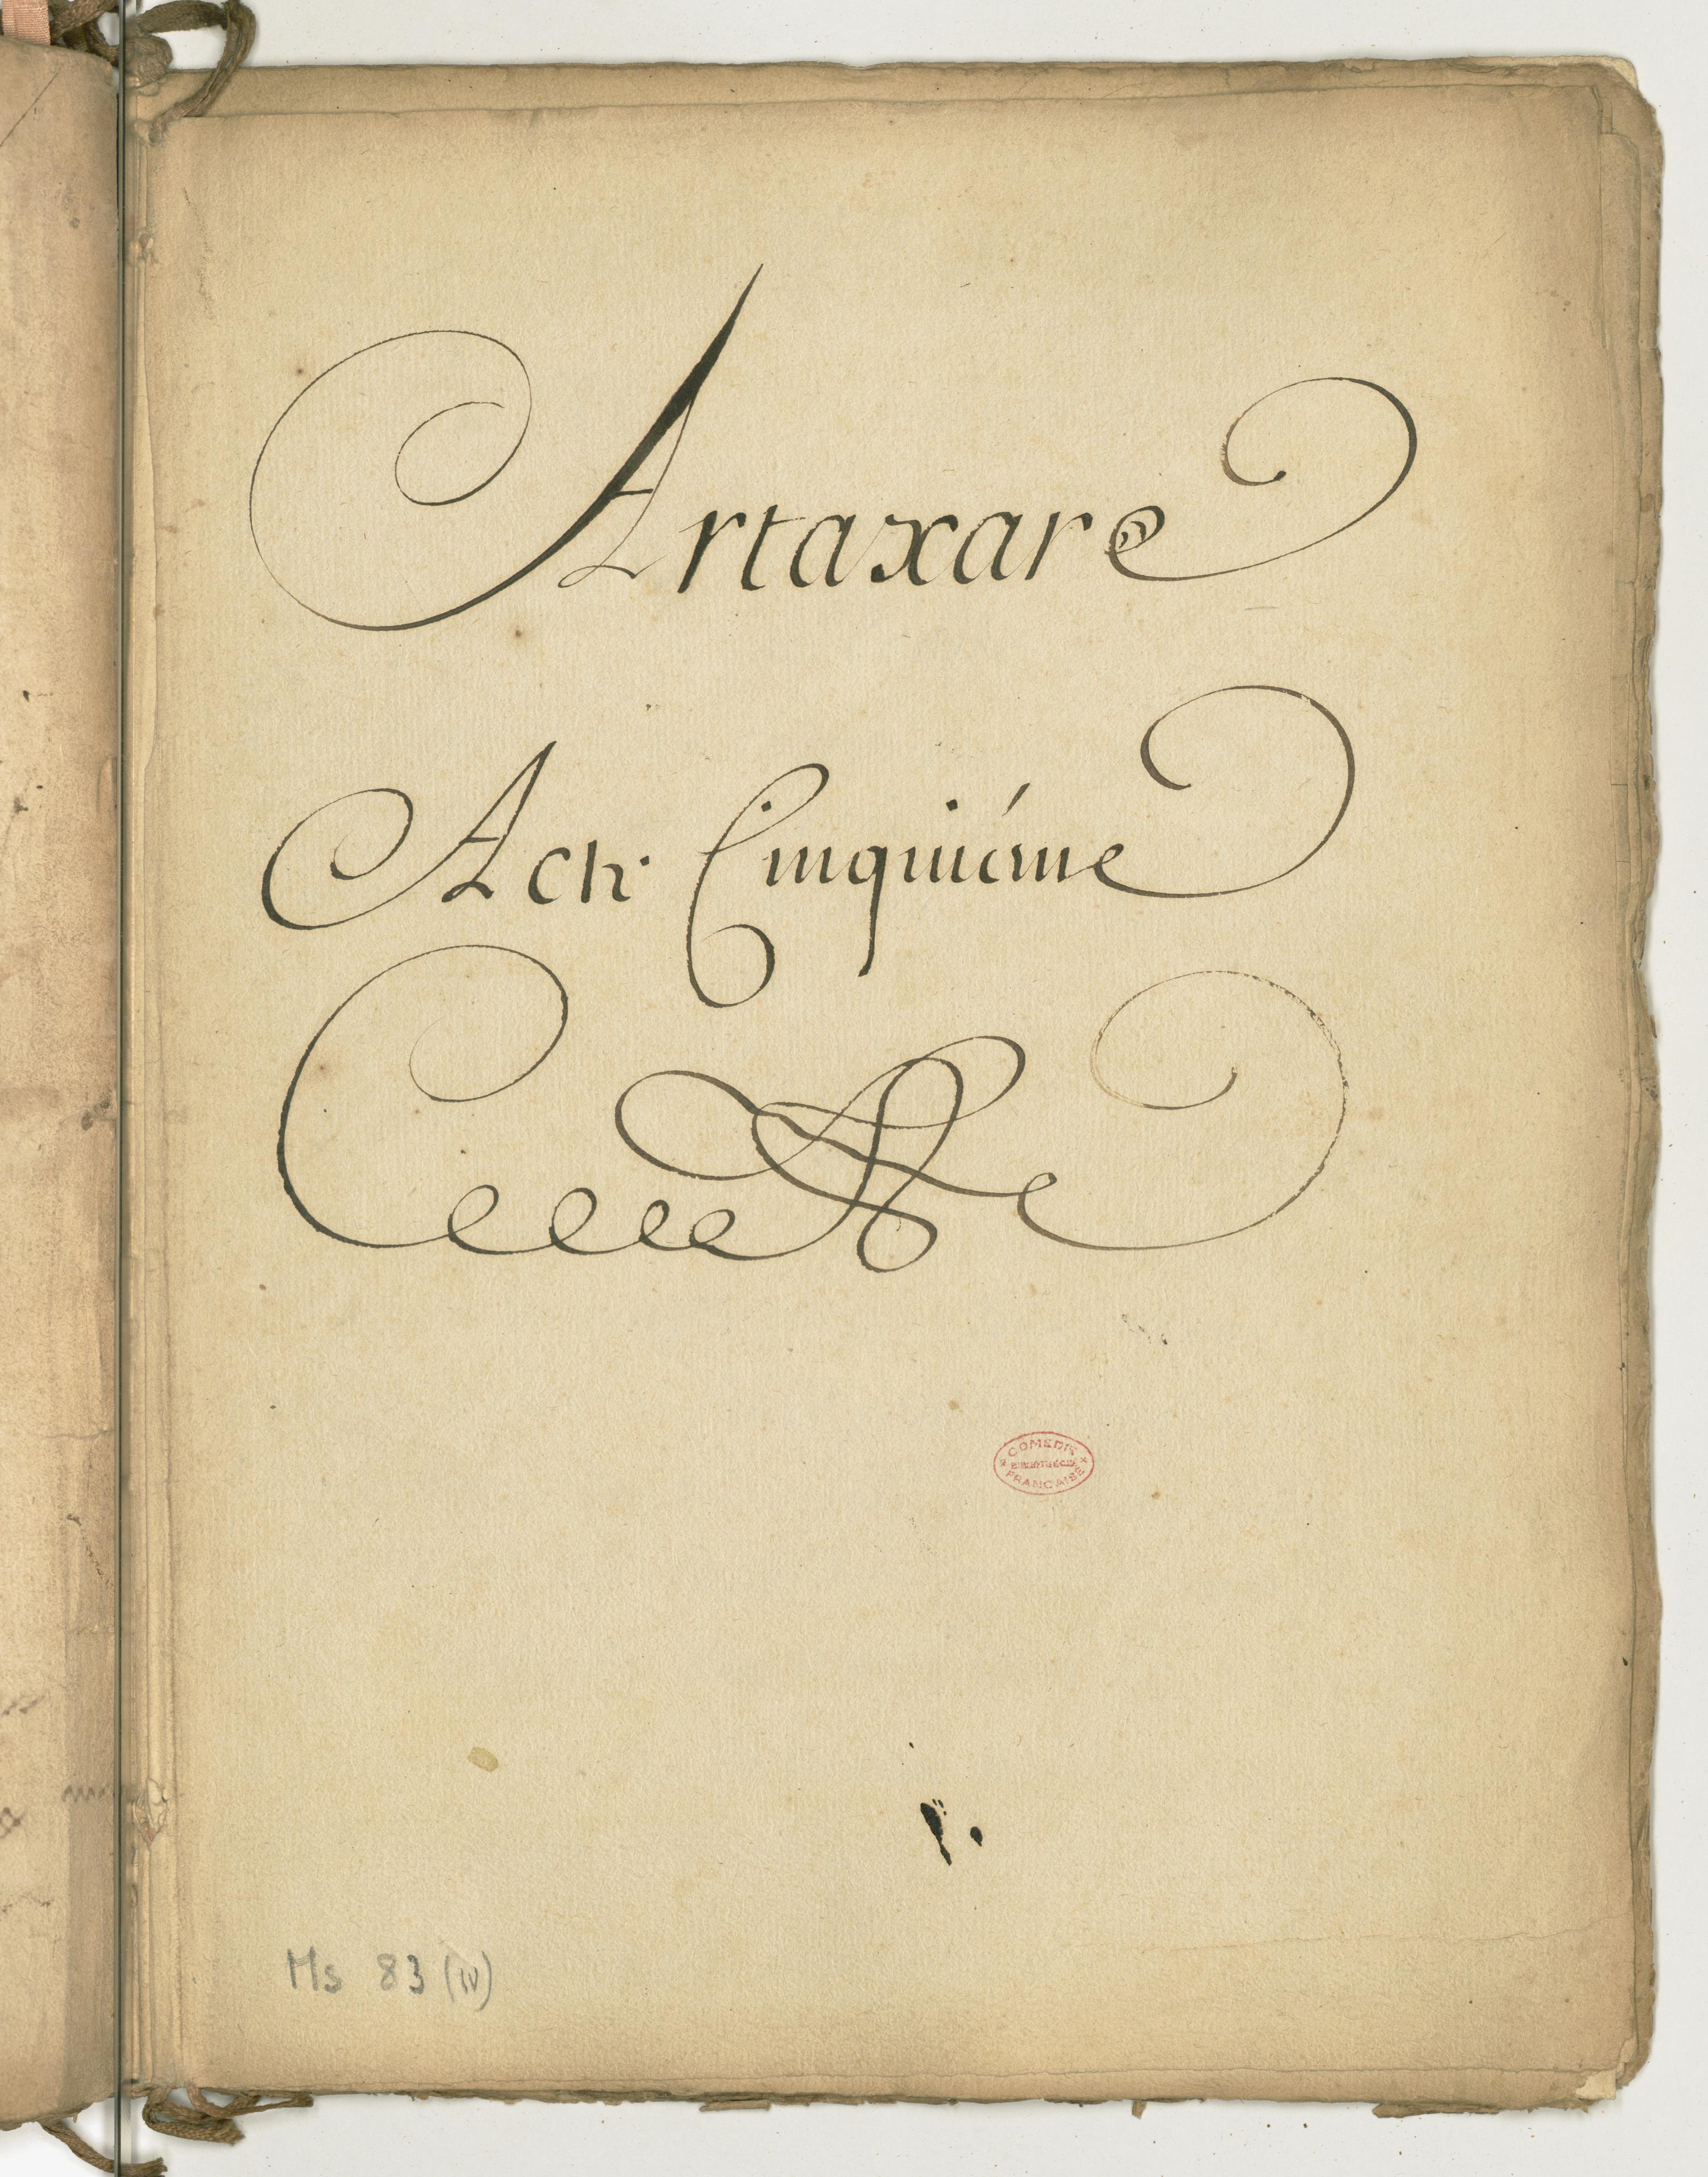 Artaxare
Acte Cinquiéme
COMÉDIE
BIBLIOTHÈQUE
FRANÇAISE
Ms 83 (IV)